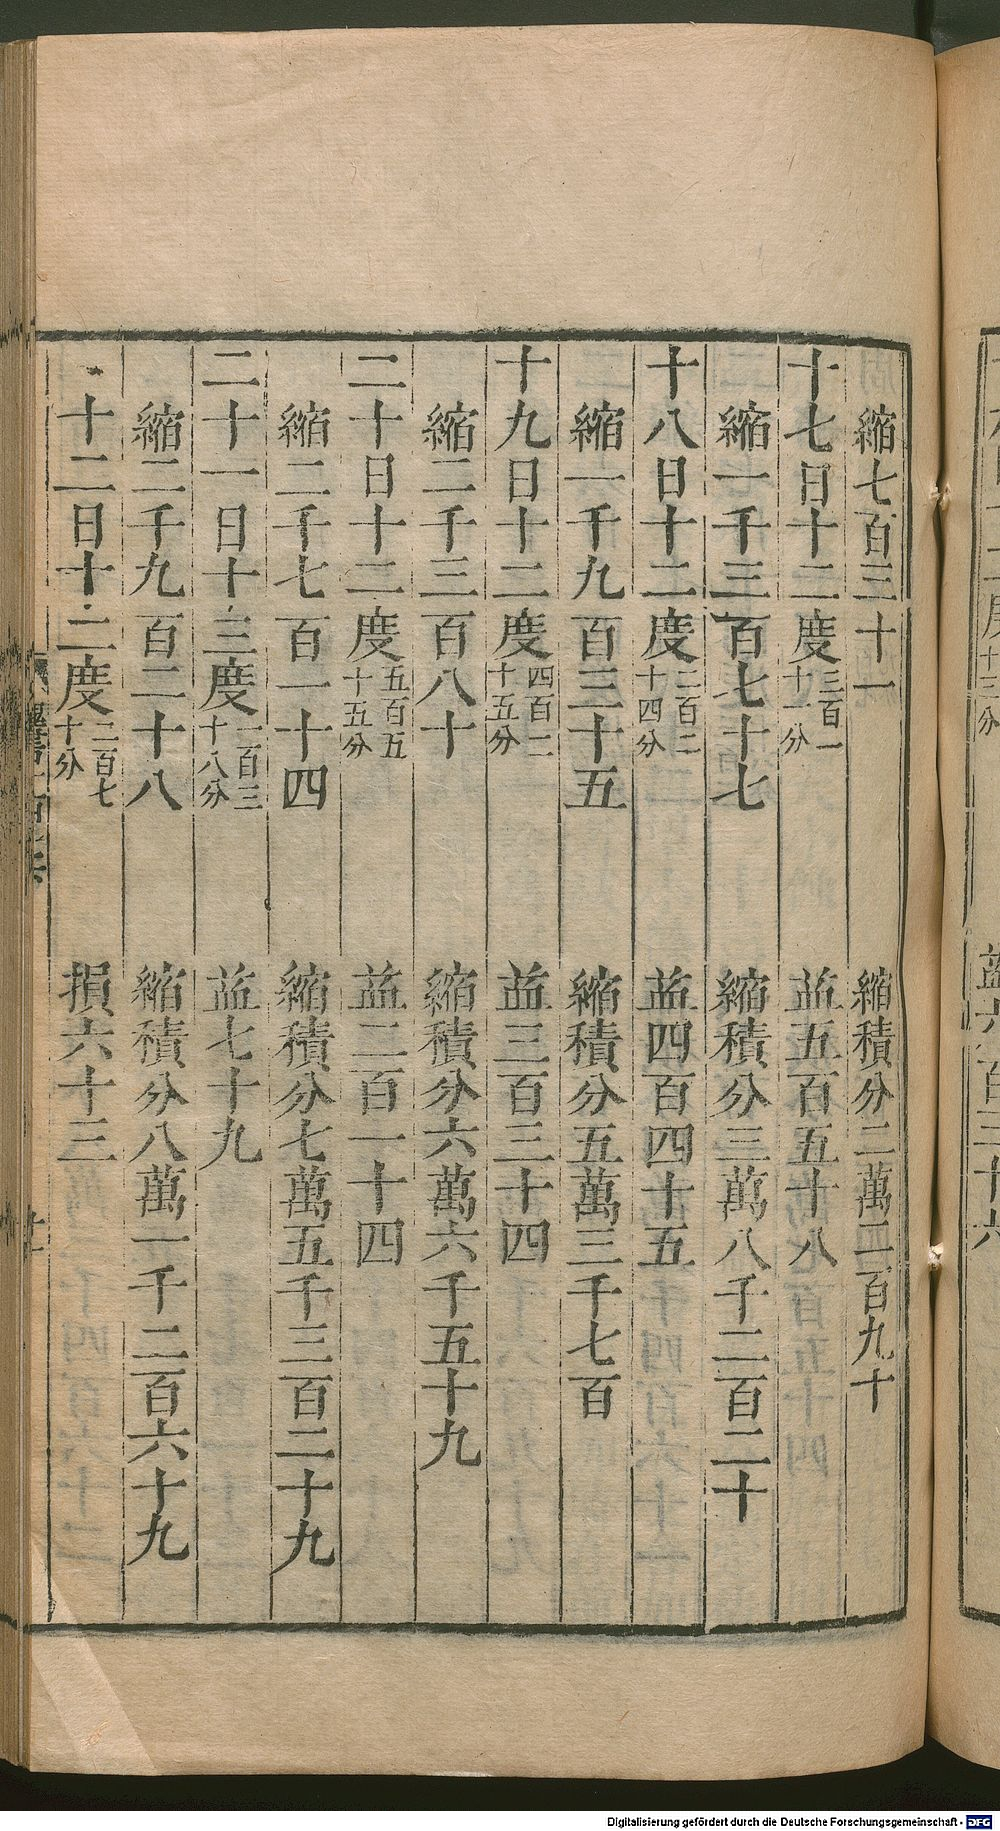 縮七百三十一 縮積分二萬二百九十
十七日十二度三百一十一分 益五百五十八
縮一千三百七十七 縮積分三萬八千二百二十
十八日十二度二百二十四分 益四百四十五
縮一千九百三十五 縮積分五萬三千七百
十九日十二度四百二十五分 益三百三十四
縮二千三百八十 縮積分六萬六千五十九
二十日十二度五百五十五分 益二百一十四
縮二千七百一十四 縮積分七萬五千三百二十九
二十一日十三度一百三十八分 益七十九
縮二千九百二十八 縮積分八萬一千二百六十九
二十二日十三度二百七十分 損六十三
Digitalisierung gefördert durch die Deutsche Forschungsgemeinschaft - DFG